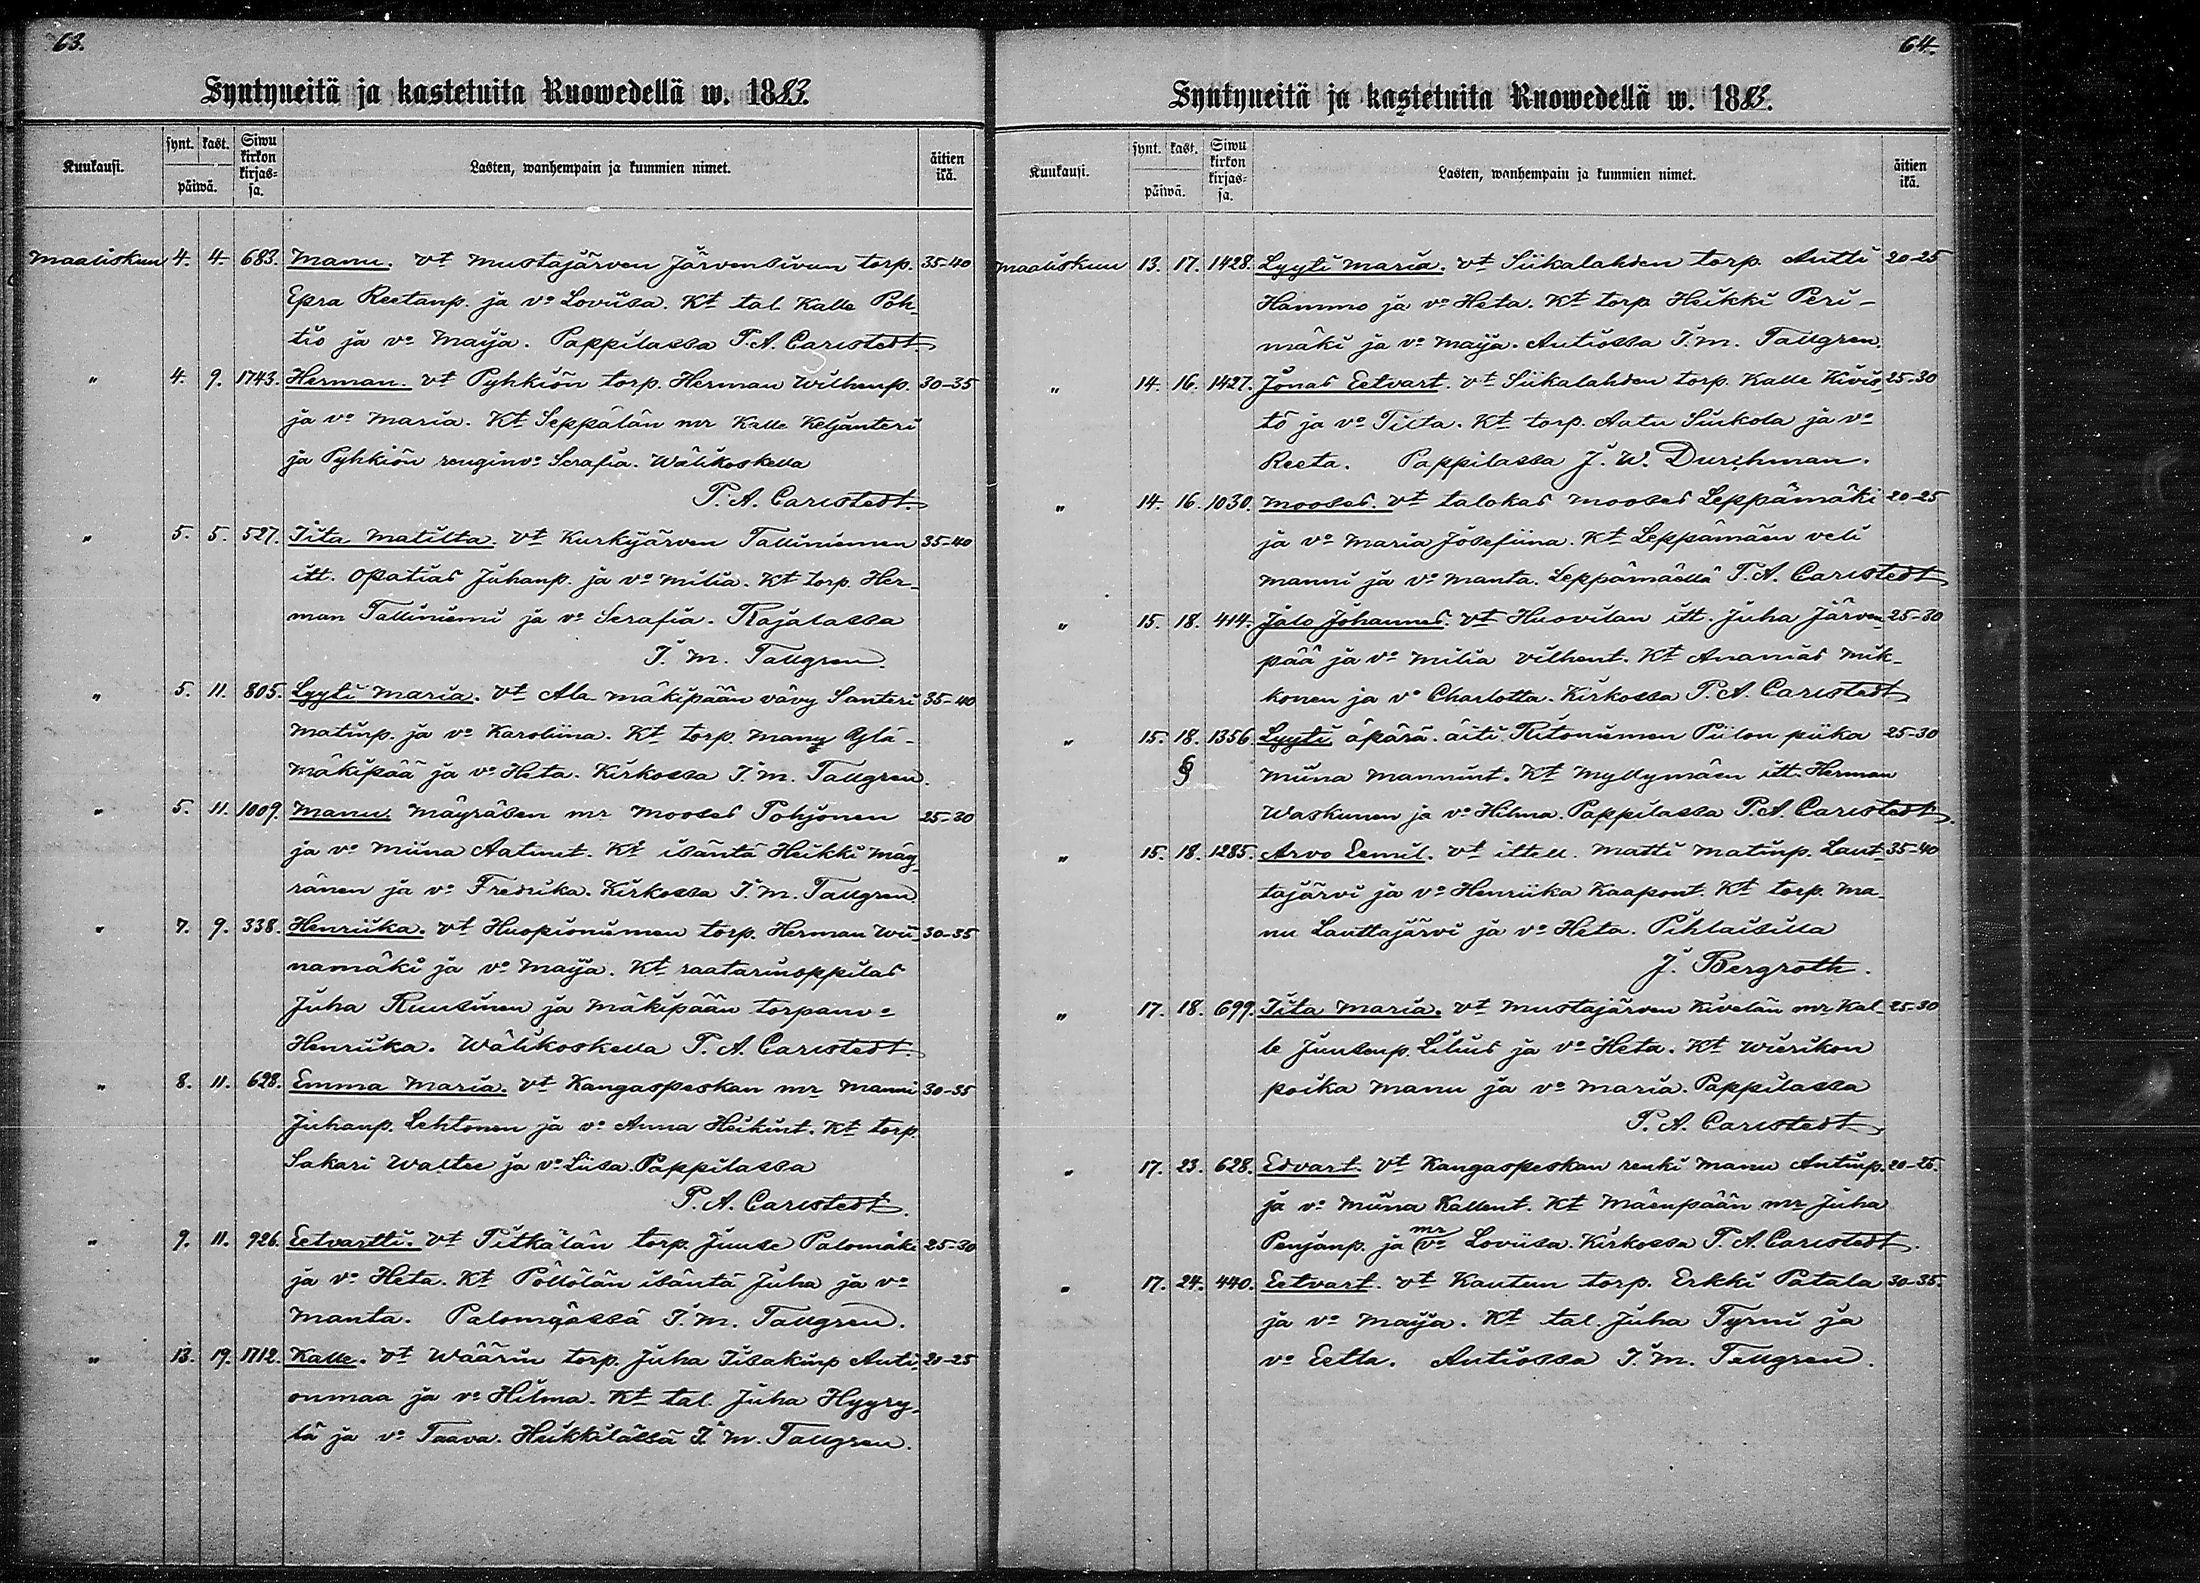 63.
Syntyneitä ja kastetuita Ruowedellä w. 1883.
Kuukausi. synt. kast. päiwä. Siwu kirkon kirjas=sa. Lasten, wanhempain ja kummien nimet. äitien ikä.
Maaliskuu 4. 4. 683. Manu. vt Mustajärven Järvensivun torp. 35-40
Epra Reetanp. ja vo Loviisa. Kt tal. Kalle Poh-
tio ja vo Maija. Pappilassa T. A. Carlstedt.
" 4. 9. 1743. Herman. vt Pyhkiön torp. Herman Wilhenp. 30-35
ja vo Maria. Kt Seppälän mr Kalle Keljänteri
ja Pyhkiön renginvo Serafia. Wälikoskella
T. A. Carlstedt.
" 5. 5. 527. Iita Matilta. vt Kurkijärven Talliniemen 35-40
itt. Opatias Juhanp. ja vo Milia. Kt torp. Her-
man Talliniemi ja vo Serafia. Rajalassa
I. M. Tallgren.
" 5. 11. 805. Lyyti Maria. vt Ala Mäkipään vävy Santeri 35-40
Matinp. ja vo Karoliina. Kt torp. Manu Ylä-
Mäkipää ja vo Heta. Kirkossa I. M. Tallgren.
" 5. 11. 1009. Manu. Mäyräsen mr Mooses Pohjonen 25-30
ja vo Miina Aatunt. Kt isäntä Heikki Mäy-
ränen ja vo Fredrika. Kirkossa I. M. Tallgren.
" 7. 9. 338. Henriika. vt Huopionniemen torp. Herman Wii- 30-35
namäki ja vo Maija. Kt raatarinoppilas
Juha Ruusinen ja Mäkipään torpanvo
Henriika. Wälikoskella T. A. Carlstedt.
" 8. 11. 628. Emma Maria. vt Kangaspeskan mr Manni 30-35
Juhanp. Lehtonen ja vo Anna Heikint. Kt torp.
Sakari Waltee ja vo Liisa. Pappilassa
T. A. Carlstedt.
" 9. 11. 926. Eetvartti. vt Pitkälän torp. Juuse Palomäki 25-30
ja vo Heta. Kt Pöllölän isäntä Juha ja vo
Manta. Palomäessä I. M. Tallgren.
" 13. 19. 1712. Kalle. vt Wäärin torp. Juha Iisakinp Auti- 20-25
onmaa ja vo Hilma. Kt tal. Juha Hyyry-
lä ja vo Taava. Heikkilässä I. M. Tallgren.
64.
Syntyneitä ja kastetuita Ruowedellä w. 1883.
Kuukausi. synt. kast. päiwä. Siwu kirkon kirjas=sa. Lasten, wanhempain ja kummien nimet. äitien ikä.
Maaliskuu 13. 17. 1428. Lyyti Maria. vt Siikalahden torp. Antti 20-25
Hammo ja vo Heta. Kt torp Heikki Peri-
mäki ja vo Maija. Autiossa I. M. Tallgren.
" 14. 16. 1427. Joonas Eetvart. vt Siikalahden torp. Kalle Kivis- 25-30
tö ja vo Tilta. Kt torp. Aatu Siukola ja vo
Reeta. Pappilassa J. W. Durchman.
" 14. 16. 1030. Mooses. vt talokas Mooses Leppämäki 20-25
ja vo Maria Josefiina. Kt Leppämäen veli
Manni ja vo Manta. Leppämäellä T. A. Carlstedt
" 15. 18. 414. Jalo Johannes. vt Huovilan itt. Juha Järven- 25-30
pää ja vo Milia Vilhent. Kt Ananias Mik-
konen ja vo Charlotta. Kirkossa T. A. Carlstedt
" 15. 18. 1356. Lyyti äpärä. äiti Ritoniemen Piilon piika 25-30
§ Miina Mannint. Kt Myllymäen itt. Herman
Waskunen ja vo Hilma. Pappilassa T. A. Carlstedt.
" 15. 18. 1285. Arvo Eemil. vt ittell. Matti Matinp. Laut- 35-40
tajärvi ja vo Henriika Kaapont. Kt torp. Ma-
nu Lauttajärvi ja vo Heta. Pihlaisilla
J. Bergroth.
" 17. 18. 699. Iita Maria. vt Mustajärven Kivelän mr Kal- 25-30
le Juusenp. Lilius ja vo Heta. Kt Wierikon
poika Manu ja vo Maria. Pappilassa
T. A. Carlstedt
" 17. 23. 628. Edvart. vt Kangaspeskan renki Manu Antinp. 20-25.
ja vo Miina Kallent. Kt Mäenpään mr Juha
Penjanp. ja mr vo Loviisa. Kirkossa T. A. Carlstedt.
" 17. 24. 440. Eetvart. vt Kautun torp. Erkki Patala 30-35.
ja vo Maija. Kt tal. Juha Tyrni ja
vo Eetla. Autiossa I. M. Tallgren.